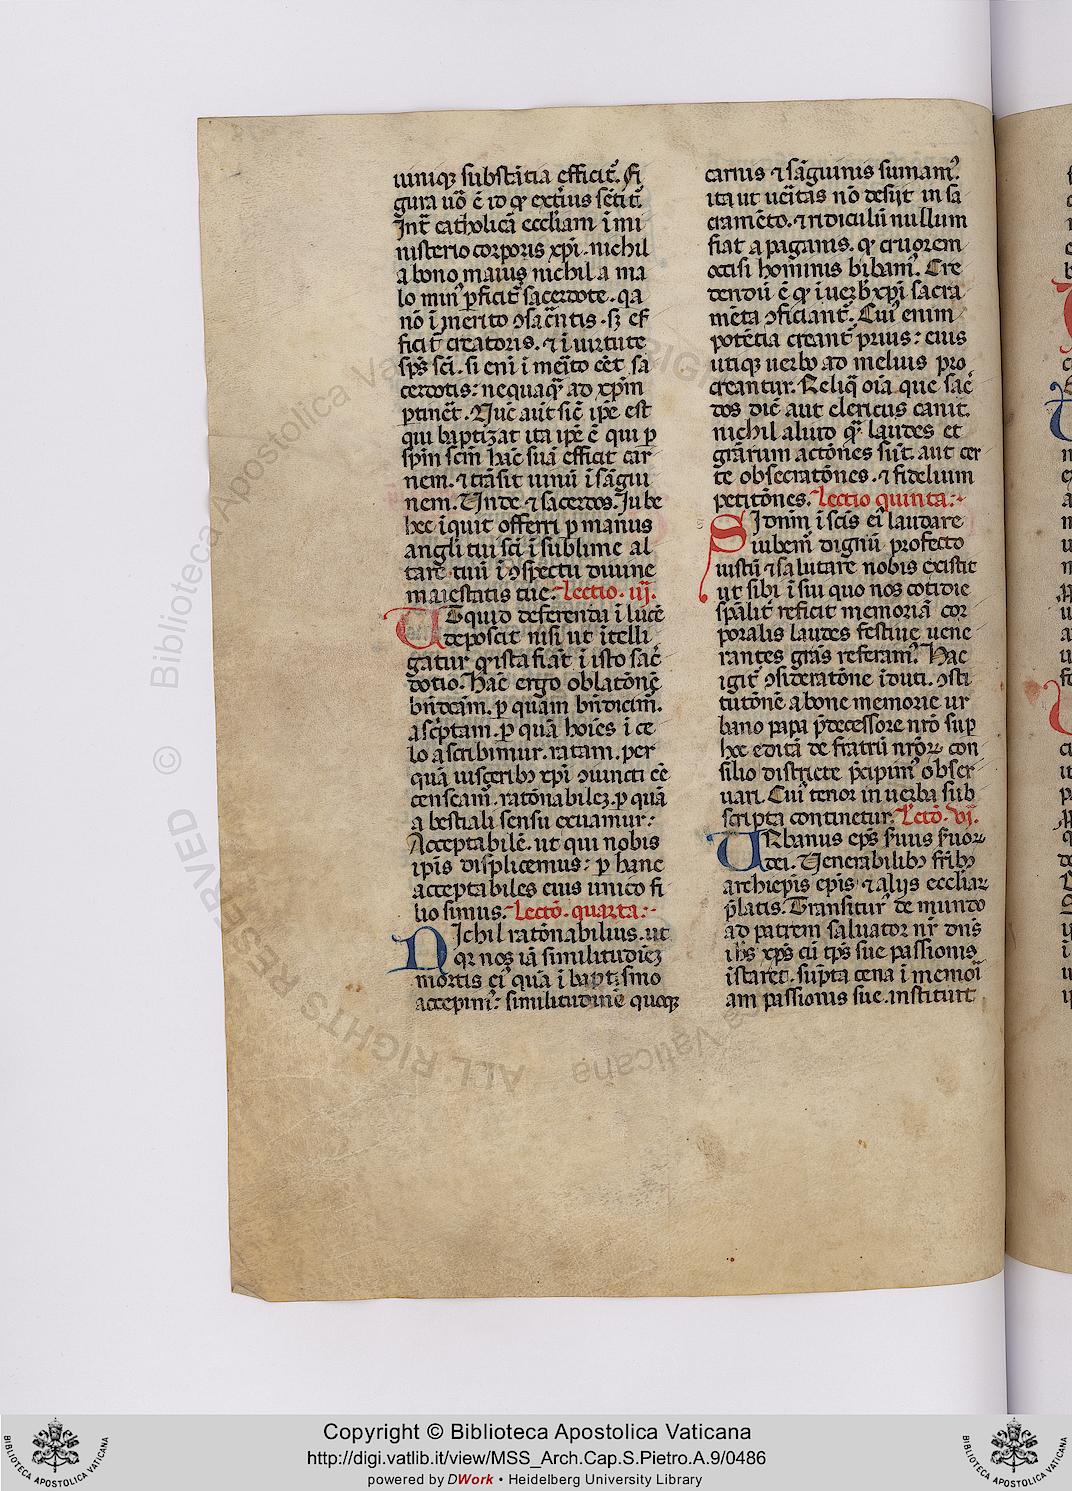 uiniq; substātia efficit᷑. Fi
gura uō ē id qđ exti᷑us sētit᷑.
Int᷑ catholicā ecclīam ī mi
nisterio corporis xp̄i. nichil
a bono maius nichil a ma
lo min᷒ ꝑficit᷑ sacerdote. qa
nō ī merito ꝯsac̄ntis. sꝫ ef
ficit᷑ creatoris. ⁊ ī uirtute
sp̄s sc̄i. si eni ī me᷑ito eēt sa
cerdotis: nequaq̄ ad xp̄m
ꝑtinēt. Nūc aut̄ sic̄ ip̄e est
qui baptizat ita ip̄e ē qui ꝑ
sp̄m sc̄m hāc suā efficit car
nem. ⁊ trāsit uinū ī sāgui
nem. Unde ⁊ sacerdos. Iube
hec īquit offerri ꝑ manus
angli tui sc̄i ī sublime al
tare tuū ī ꝯspectu diuine
maiestatis tue. Lectio. iij.
UTquid deferenda ī lucē
deposcit nisi ut ītelli
gatur qđ ista fiāt ī isto sac᷑
dotio. Hāc ergo oblatōnē
bn̄dcām. ꝑ quam bn̄dicim᷒.
asc᷑ptam. ꝑ quā hoīes ī ce
lo ascribimur. ratam. per
quā uiscerib᷒ xp̄i ꝯiuncti eē
censeam᷒. ratōnabilez. ꝑ quā
a bestiali sensu exuamur:
Acceptabilē. ut qui nobis
ip̄is displicemus: ꝑ hanc
acceptabiles eius unico fi
lio simus. Lectō. quarta:
NIchil ratōnabilius. ut
qr nos iā similitudīez
mortis ei᷒ quā ī baptismo
accepim᷒: similitudinē quoqꝫ
carnis ⁊ sāguinis sumam᷒.
ita ut ue᷑itas nō desit in sa
cramēto. ⁊ ridiculū nullum
fiat a paganis. qđ cruorem
occisi hominis bibam᷒. Cre
dendū ē qđ ī uerb᷒ xp̄i sacra
mēta ꝯficiant᷑. Cui᷒ enim
potētia creant᷑ prius: eius
utiqꝫ uerbo ad melius pro
creantur. Reliq̄ oīa que sac᷑
dos dic̄ aut clericus canit.
nichil aliud q̄ laudes et
grārum actōnes sūt. aut cer
te obsecratōnes. ⁊ fidelium
petitōnes. Lectio quinta:
SI dnm̄ ī sc̄is ei᷒ laudare
iubem᷒ dignū profecto
iustū ⁊ salutare nobis existit
ut sibi ī siu quo nos cotidie
sp̄alit᷑ reficit memoriā cor
poralis laudes festiue uene
rantes grās referam᷒. Hac
igit᷑ ꝯsideratōne īduti. ꝯsti
tutōnē a bone memorie ur
bano papa p̄decessore nr̄o sup
hoc editā de fratrū nr̄oꝝ con
silio districte p̄cipim᷒ obser
uari. Cui᷒ tenor in uerba sub
scripta continetur. Lectō. vj.
URbanus ep̄s s᷑uus s᷑uoꝝ
dei. Uenerabilib᷒ fr̄ib᷒
archiep̄is ep̄is ⁊ alijs eccliaꝝ
p̄latis. Transitur᷒ de mundo
ad patrem saluator nr̄ dn̄s
ih̄s xp̄s cū tp̄s sue passionis
īstaret. sūpta cena ī memoī
am passionis sue. instituit
ALL RIGHTS RESERVED © Biblioteca Apostolica Vaticana
Copyright © Biblioteca Apostolica Vaticana
http://digi.vatlib.it/view/MSS_Arch.Cap.S.Pietro.A.9/0486
powered by DWork • Heidelberg University Library
BIBLIOTECA APOSTOLICA VATICANA
BIBLIOTECA APOSTOLICA VATICANA